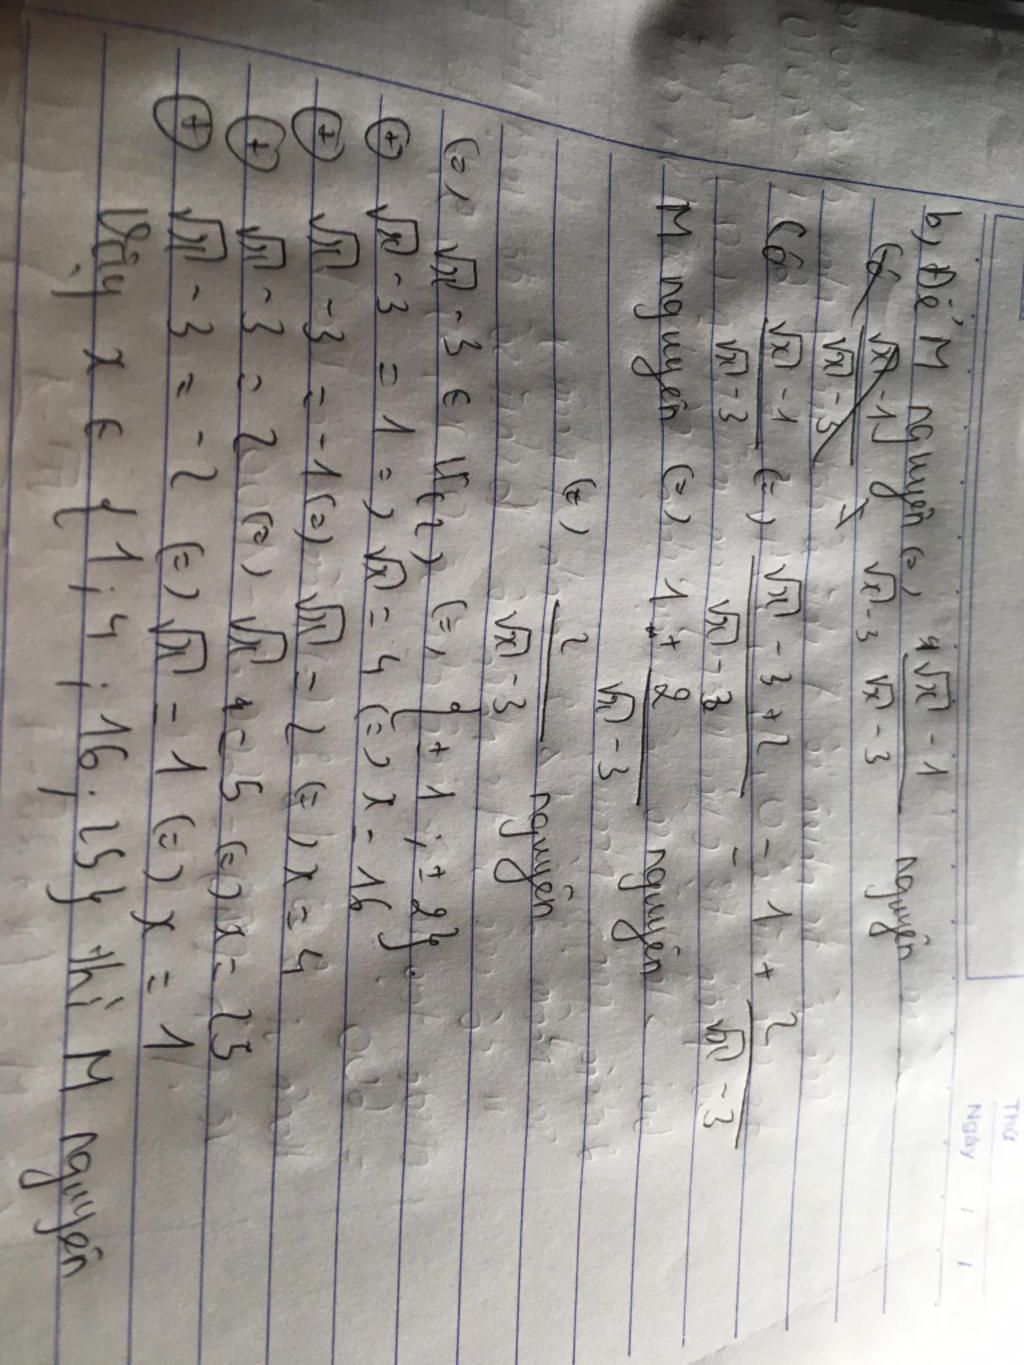 Thứ
Ngày / /
b, Để M nguyên (=) √x - 1 / √x - 3 nguyên
Có √x - 1 / √x - 3 (=) √x - 3 + 2 / √x - 3 = 1 + 2 / √x - 3
M nguyên (=) 1 + 2 / √x - 3 nguyên
(=) 2 / √x - 3 nguyên
(=) √x - 3 ∈ Ư(2) (=) {±1 ; ±2}.
⊕ √x - 3 = 1 =) √x = 4 (=) x = 16
⊕ √x - 3 = -1 (=) √x = 2 (=) x = 4
⊕ √x - 3 = 2 (=) √x = 5 (=) x = 25
⊕ √x - 3 = -2 (=) √x = 1 (=) x = 1
Vậy x ∈ {1 ; 4 ; 16 ; 25} thì M nguyên